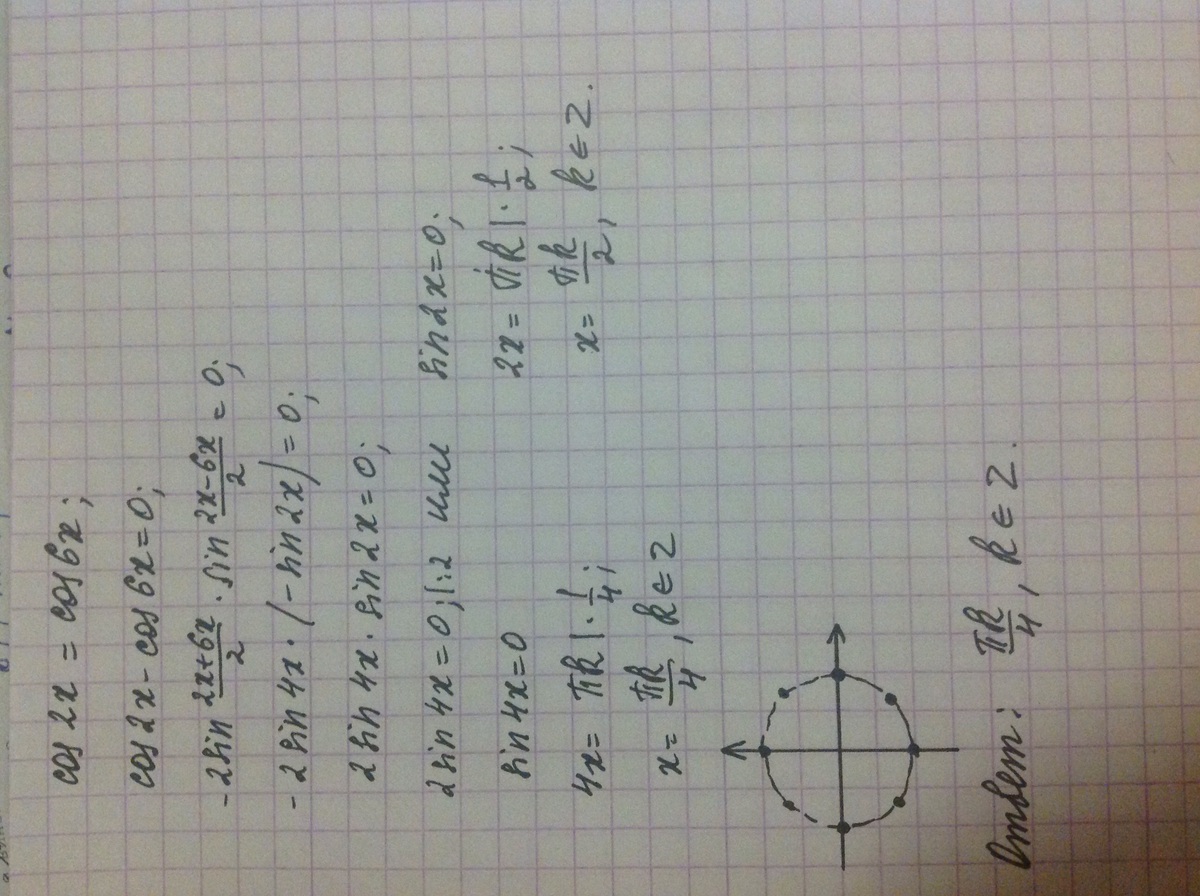 cos 2x = cos 6x;
cos 2x - cos 6x = 0;
-2 sin \frac{2x+6x}{2} · sin \frac{2x-6x}{2} = 0;
-2 sin 4x · (-sin 2x) = 0;
2 sin 4x · sin 2x = 0;
2 sin 4x = 0; |:2 или sin 2x = 0;
sin 4x = 0 2x = πk | · \frac{1}{2};
4x = πk | · \frac{1}{4}; x = \frac{πk}{2}, k ∈ Z.
x = \frac{πk}{4}, k ∈ Z
Ответ: \frac{πk}{4}, k ∈ Z.